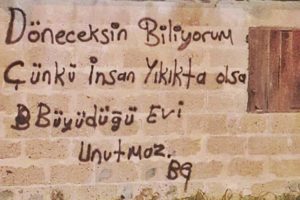 Döneceksin Biliyorum
Çünkü İnsan Yıkıkta olsa
B Büyüdüğü Evi
Unutmaz.
BG